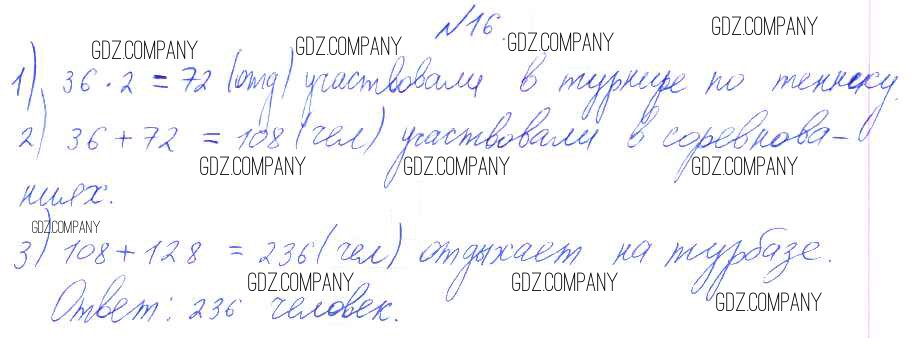 №16.
GDZ.COMPANY GDZ.COMPANY GDZ.COMPANY GDZ.COMPANY
1) 36 · 2 = 72 (отд) участвовали в турнире по теннису.
2) 36 + 72 = 108 (чел) участвовали в соревнова-
GDZ.COMPANY GDZ.COMPANY GDZ.COMPANY
ниях.
GDZ.COMPANY
3) 108 + 128 = 236 (чел) отдыхает на турбазе.
GDZ.COMPANY GDZ.COMPANY GDZ.COMPANY
Ответ: 236 человек.